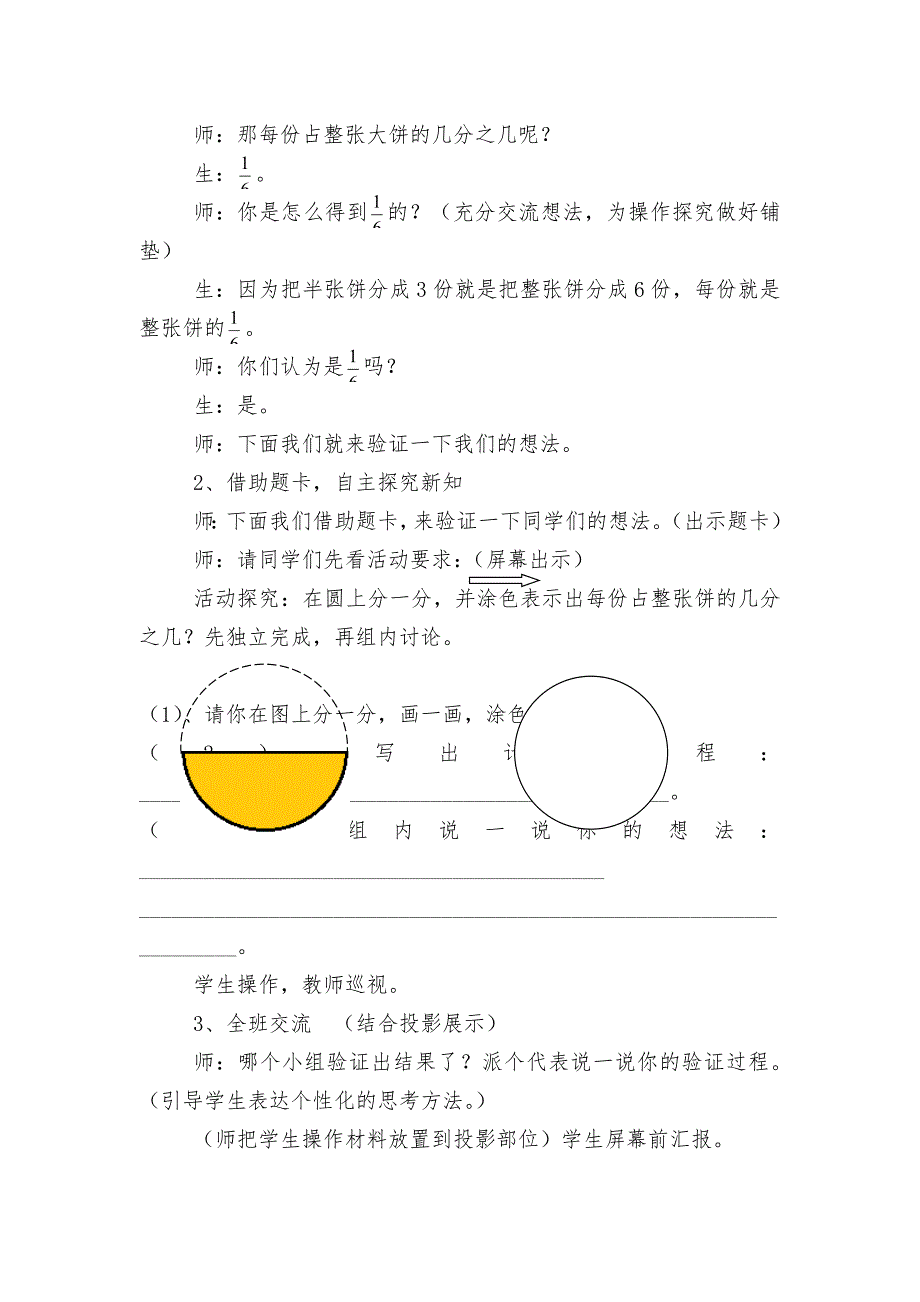 师：那每份占整张大饼的几分之几呢？
生：1/6。
师：你是怎么得到1/6的？（充分交流想法，为操作探究做好铺
垫）
生：因为把半张饼分成3份就是把整张饼分成6份，每份就是
整张饼的1/6。
师：你们认为是1/6吗？
生：是。
师：下面我们就来验证一下我们的想法。
2、借助题卡，自主探究新知
师：下面我们借助题卡，来验证一下同学们的想法。（出示题卡）
师：请同学们先看活动要求：（屏幕出示）
活动探究：在圆上分一分，并涂色表示出每份占整张饼的几分
之几？先独立完成，再组内讨论。
（1）、请你在图上分一分，画一画，涂色
（2）写出 程：
____ ______________________________。
（ 组内说一说你的想法：
___________________________________________
___________________________________________________________
_________。
学生操作，教师巡视。
3、全班交流 （结合投影展示）
师：哪个小组验证出结果了？派个代表说一说你的验证过程。
（引导学生表达个性化的思考方法。）
（师把学生操作材料放置到投影部位）学生屏幕前汇报。